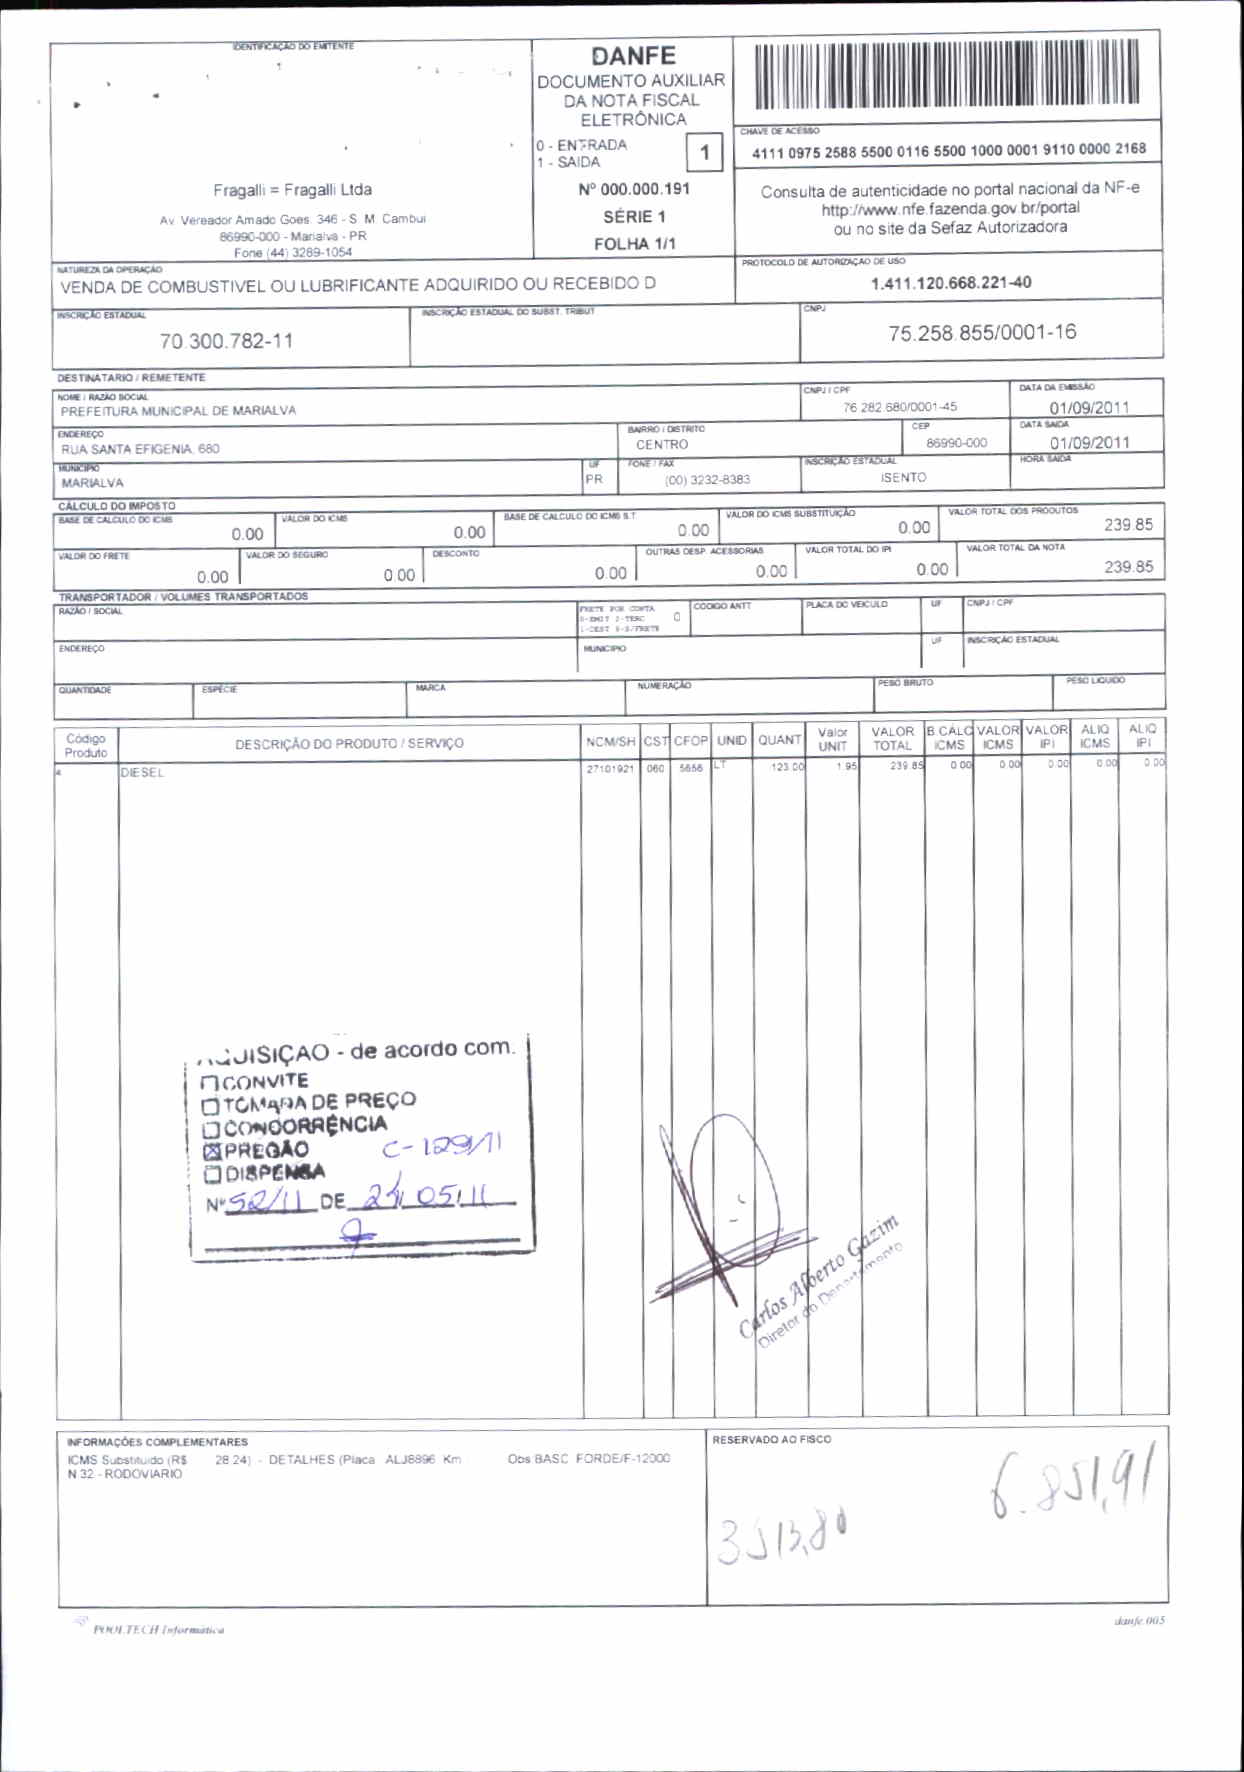 IDENTIFICAÇÃO DO EMITENTE
Fragalli = Fragalli Ltda
Av. Vereador Amado Goes, 346 - S. M. Cambui
86990-000 - Marialva - PR
Fone (44) 3289-1054
DANFE
DOCUMENTO AUXILIAR
DA NOTA FISCAL
ELETRÔNICA
0 - ENTRADA
1 - SAIDA
1
Nº 000.000.191
SÉRIE 1
FOLHA 1/1
CHAVE DE ACESSO
4111 0975 2588 5500 0116 5500 1000 0001 9110 0000 2168
Consulta de autenticidade no portal nacional da NF-e
http://www.nfe.fazenda.gov.br/portal
ou no site da Sefaz Autorizadora
NATUREZA DA OPERAÇÃO
VENDA DE COMBUSTIVEL OU LUBRIFICANTE ADQUIRIDO OU RECEBIDO D
PROTOCOLO DE AUTORIZAÇAO DE USO
1.411.120.668.221-40
INSCRIÇÃO ESTADUAL
70.300.782-11
INSCRIÇÃO ESTADUAL DO SUBST. TRIBUT
CNPJ
75.258.855/0001-16
DESTINATARIO / REMETENTE
NOME / RAZÃO SOCIAL
PREFEITURA MUNICIPAL DE MARIALVA
CNPJ / CPF
76.282.680/0001-45
DATA DA EMISSÃO
01/09/2011
ENDEREÇO
RUA SANTA EFIGENIA, 680
BAIRRO / DISTRITO
CENTRO
CEP
86990-000
DATA SAIDA
01/09/2011
MUNICIPIO
MARIALVA
UF
PR
FONE / FAX
(00) 3232-8383
INSCRIÇÃO ESTADUAL
ISENTO
HORA SAIDA
CÁLCULO DO IMPOSTO
BASE DE CALCULO DO ICMS 0.00
VALOR DO ICMS 0.00
BASE DE CALCULO DO ICMS S.T. 0.00
VALOR DO ICMS SUBSTITUIÇÃO 0.00
VALOR TOTAL DOS PRODUTOS 239.85
VALOR DO FRETE 0.00
VALOR DO SEGURO 0.00
DESCONTO 0.00
OUTRAS DESP. ACESSORIAS 0.00
VALOR TOTAL DO IPI 0.00
VALOR TOTAL DA NOTA 239.85
TRANSPORTADOR / VOLUMES TRANSPORTADOS
RAZÃO / SOCIAL
FRETE POR CONTA
0-EMIT 2-TERC
1-DEST 9-S/FRETE
0
CODIGO ANTT
PLACA DO VEICULO
UF
CNPJ / CPF
ENDEREÇO
MUNICIPIO
UF
INSCRIÇÃO ESTADUAL
QUANTIDADE
ESPÉCIE
MARCA
NUMERAÇÃO
PESO BRUTO
PESO LIQUIDO
Código Produto DESCRIÇÃO DO PRODUTO / SERVIÇO NCM/SH CST CFOP UNID QUANT Valor UNIT VALOR TOTAL B.CÁLC ICMS VALOR ICMS VALOR IPI ALIQ ICMS ALIQ IPI
4 DIESEL 27101921 060 5656 LT 123.00 1.95 239.85 0.00 0.00 0.00 0.00 0.00
AQUISIÇAO - de acordo com.
CONVITE
TOMADA DE PREÇO
CONCORRÊNCIA
PREGÃO C-129/11
DISPENSA
Nº 52/11 DE 05/11
Carlos Alberto Gazim
Diretor do Departamento
INFORMAÇÕES COMPLEMENTARES
ICMS Substituido (R$ 28.24) - DETALHES (Placa: ALJ8896 Km: Obs:BASC. FORDE/F-12000
N.32 - RODOVIARIO
RESERVADO AO FISCO
6.851,91
3513,80
POOLTECH Informatica
danfe.005